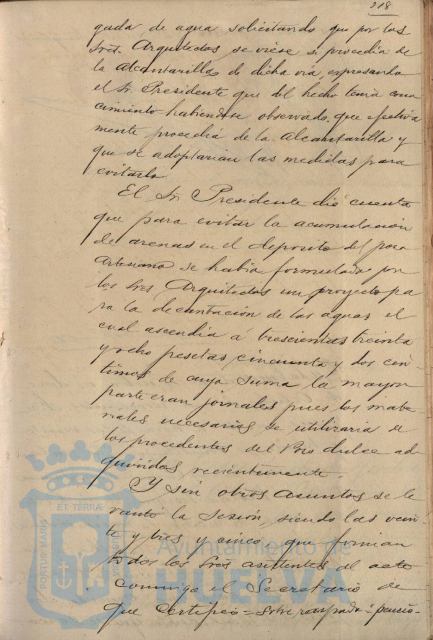 218
gada de agua solicitando que por los
Sres. Arquitectos se viese si procedia de
la Alcantarilla de dicha via, expresando
el Sr. Presidente que del hecho tenia cono
cimiento habiendose observado que efectiva
mente procedia de la Alcantarilla y
que se adoptarian las medidas para
evitarlo.
El Sr. Presidente dió cuenta
que para evitar la acumulación
de arenas en el deposito del pozo
Artesiano se habia formulado por
los Sres Arquitectos un proyecto pa
ra la decantación de las aguas el
cual ascendia á trescientas treinta
y ocho pesetas cincuenta y dos cen-
timos de cuya suma la mayor
parte eran jornales pues los mate
riales necesarios se utilizaria de
los procedentes del Pozo dulce ad-
quiridos recientemente.
Y sin otros asuntos se le
vantó la Sesión, siendo las vein
te y tres y cinco, que firman
todos los Sres asistentes al acto
conmigo el Secretario de
que Certifico = Sobre raspado =
ET TERRÆ
PORTUS MARIS
Ayuntamiento de
HUELVA